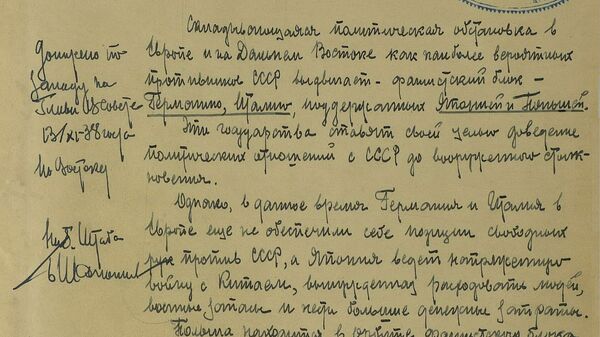 Складывающаяся политическая обстановка в
Европе и на Дальнем Востоке как наиболее вероятных
противников СССР выдвигает – фашистский блок –
Германию, Италию, поддержанных Японией и Польшей.
Эти государства ставят своей целью доведение
политических отношений с СССР до вооруженного столк-
новения.
Однако, в данное время Германия и Италия в
Европе еще не обеспечили себе позиции свободных
рук против СССР, а Япония ведет напряженную
войну с Китаем, вынужденная расходовать людей,
военные запасы и нести большие денежные затраты.
Польша находится в орбите фашистского блока
Доложено по
Западу на
Главн. В/Совете
13/XI-38 года
По Востоку
Нач. Штаба